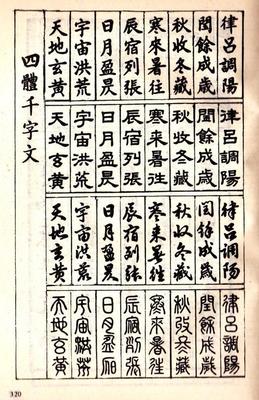 四體千字文
天地玄黃
宇宙洪荒
日月盈昃
辰宿列張
寒來暑往
秋收冬藏
閏餘成歲
律呂調陽
天地玄黃
宇宙洪荒
日月盈昃
辰宿列張
寒來暑往
秋收冬藏
閏餘成歲
律呂調陽
天地玄黃
宇宙洪荒
日月盈昃
辰宿列張
寒來暑往
秋收冬藏
閏餘成歲
律呂調陽
天地玄黃
宇宙洪荒
日月盈昃
辰宿列張
寒來暑往
秋收冬藏
閏餘成歲
律呂調陽
320